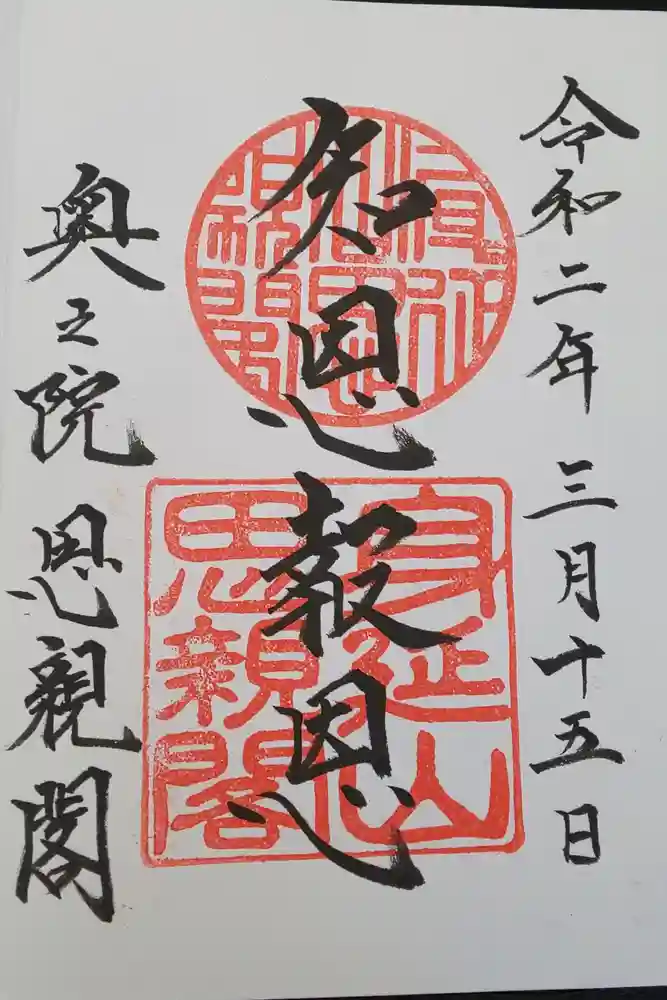 令和二年三月十五日
知恩報恩
身延山
思親閣
奥之院思親閣